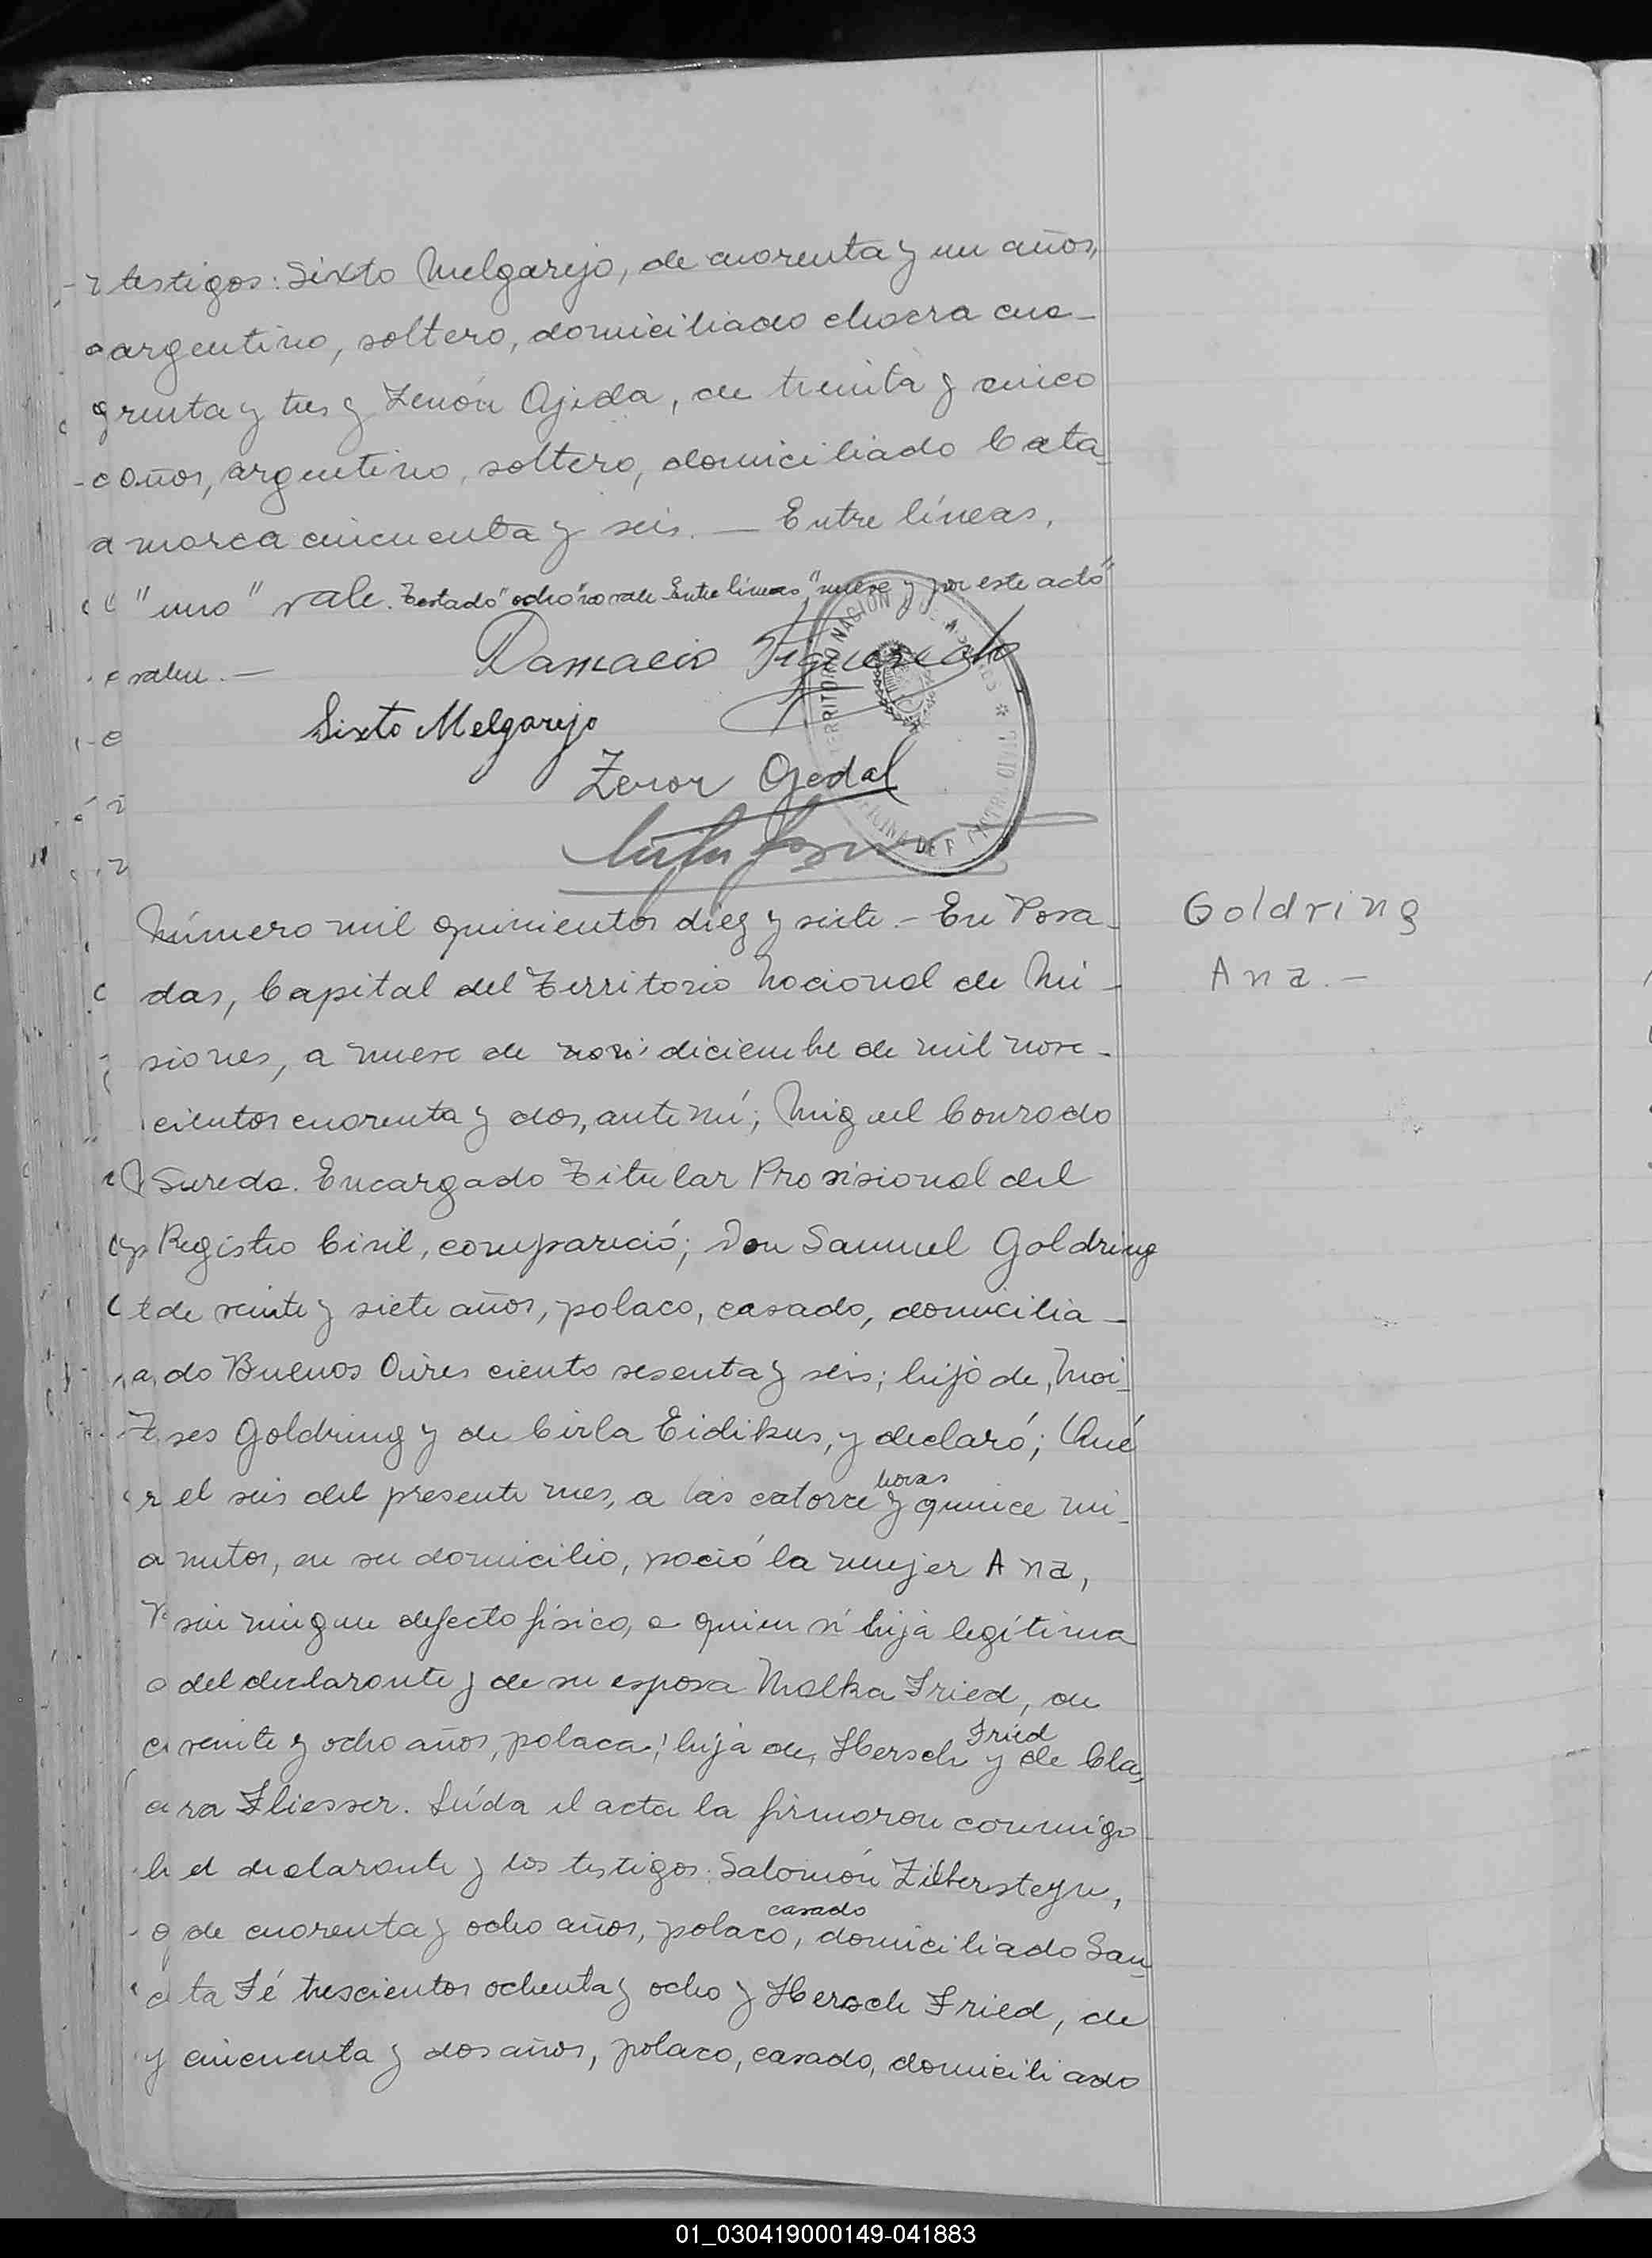 testigos: Sixto Melgarejo, de cuarenta y un años,
argentino, soltero, domiciliado chacra cua-
renta y tres y Zenón Ojeda, de treinta y cinco
años, argentino, soltero, domiciliado Cata-
marca cincuenta y seis. — Entre líneas,
"uno" vale. Testado "ocho" no vale. Entre líneas, "nueve y por este acto"
valen. —
Damacio Figueredo
Sixto Melgarejo
Zenon Ojeda
TERRITORIO NACIONAL DE MISIONES * OFICINA DEL REGISTRO CIVIL
Número mil quinientos diez y siete. - En Posa-
Goldring
das, Capital del Territorio Nacional de Mi-
Ana. -
siones, a nueve de diciembre de mil nove-
cientos cuarenta y dos, ante mí; Miguel Conrado
Sureda. Encargado Titular Provisional del
Registro Civil, compareció; Don Samuel Goldring
de veinte y siete años, polaco, casado, domicilia-
do Buenos Aires ciento sesenta y seis; hijo de, Moi-
ses Goldring y de Cirla Eidikus, y declaró; Qué
el seis del presente mes, a las catorce horas y quince mi-
nutos, en su domicilio, nació la mujer Ana,
sin ningun defecto físico, a quien ví hija legítima
del declarante y de su esposa Malka Fried, de
veinte y ocho años, polaca; hija de, Hersch Fried y de Cla-
ra Fliesser. Leída el acta la firmaron conmigo
el declarante y los testigos: Salomón Zilbersteyn,
de cuarenta y ocho años, polaco, casado, domiciliado San-
ta Fé trescientos ochenta y ocho y Hersch Fried, de
cincuenta y dos años, polaco, casado, domiciliado
01_030419000149-041883